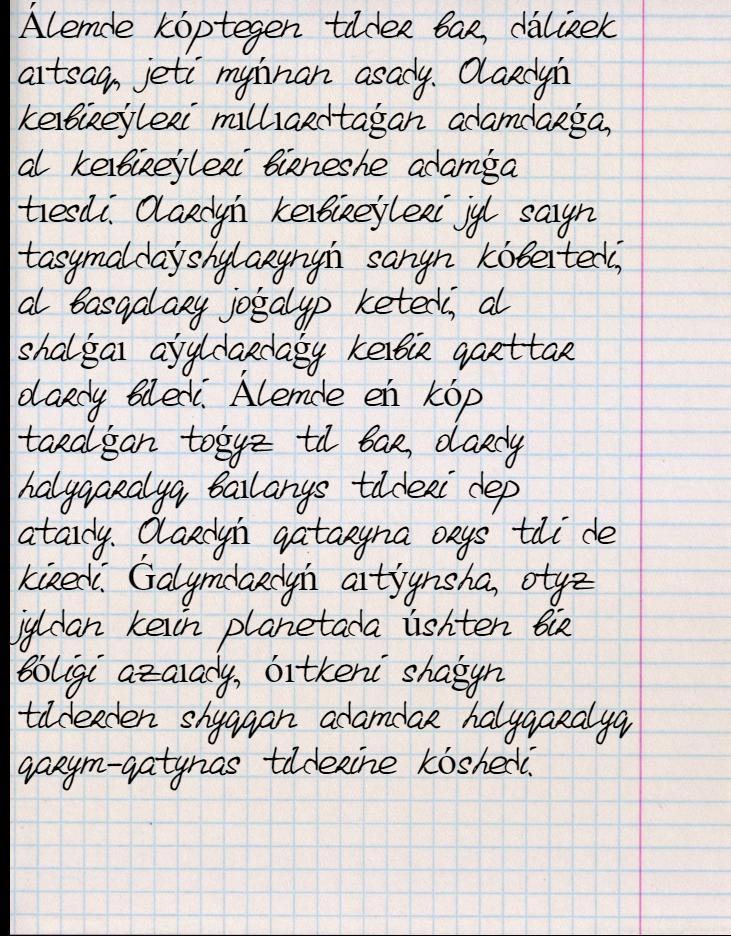 Álemde kóptegen tilder bar, dálirek
aıtsaq, jeti myńnan asady. Olardyń
keıbireýleri mıllıardtaǵan adamdarǵa,
al keıbireýleri birneshe adamǵa
tıesili. Olardyń keıbireýleri jyl saıyn
tasymaldaýshylarynyń sanyn kóbeıtedi,
al basqalary joǵalyp ketedi, al
shalǵaı aýyldardaǵy keıbir qarttar
olardy biledi. Álemde eń kóp
taralǵan toǵyz til bar, olardy
halyqaralyq baılanys tilderi dep
ataıdy. Olardyń qataryna orys tili de
kiredi. Ǵalymdardyń aıtýynsha, otyz
jyldan keıin planetada úshten bir
bóligi azaıady, óıtkeni shaǵyn
tilderden shyqqan adamdar halyqaralyq
qarym-qatynas tilderine kóshedi.